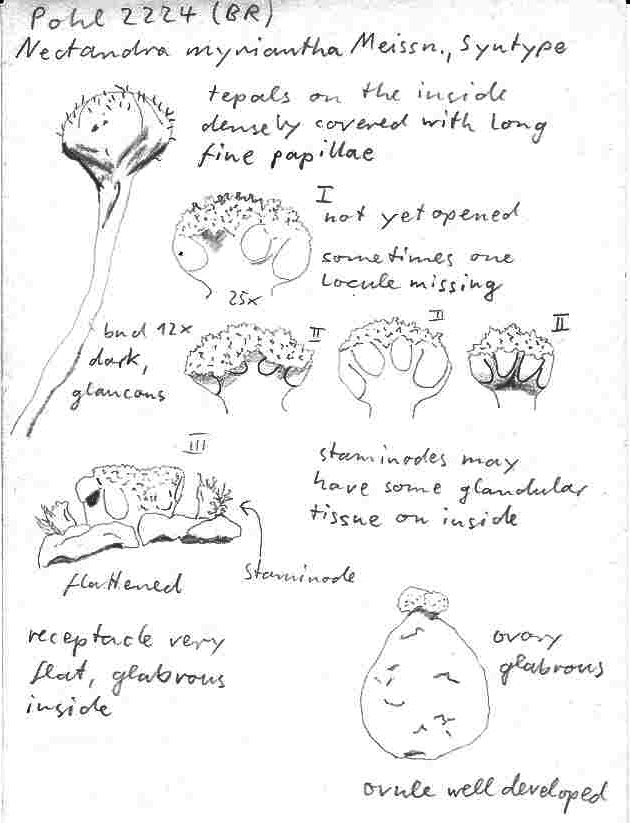 Pohl 2224 (BR)
Nectandra myriantha Meissn., Syntype
tepals on the inside
densely covered with long
fine papillae
I
not yet opened
sometimes one
locule missing
25x
bud 12x
dark,
glaucous
II
II
II
III
staminodes may
have some glandular
tissue on inside
flattened
Staminode
receptacle very
flat, glabrous
inside
ovary
glabrous
ovule well developed